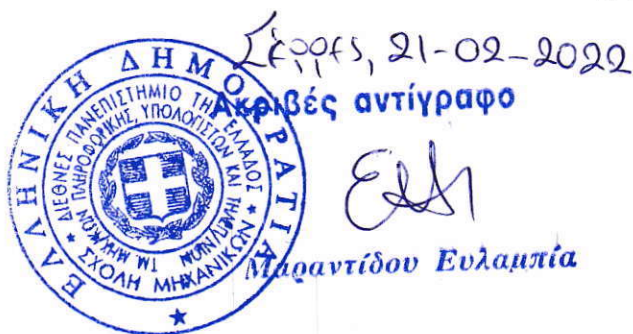 Σέρρες, 21-02-2022
Ακριβές αντίγραφο
Μαραντίδου Ευλαμπία
ΕΛΛΗΝΙΚΗ ΔΗΜΟΚΡΑΤΙΑ
ΔΙΕΘΝΕΣ ΠΑΝΕΠΙΣΤΗΜΙΟ ΤΗΣ ΕΛΛΑΔΟΣ
ΤΜ. ΜΗΧΑΝΙΚΩΝ ΠΛΗΡΟΦΟΡΙΚΗΣ, ΥΠΟΛΟΓΙΣΤΩΝ ΚΑΙ ΤΗΛΕΠ/ΝΙΩΝ
ΣΧΟΛΗ ΜΗΧΑΝΙΚΩΝ